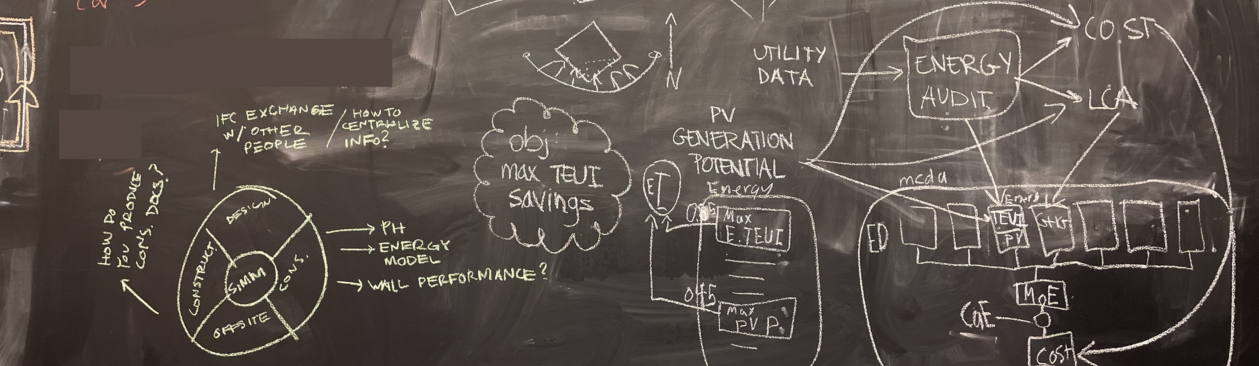 IFC EXCHANGE
W/ OTHER
PEOPLE
/ HOW TO
CENTRALIZE
INFO?
HOW DO
YOU PRODUCE
CONS. DOCS.?
DESIGN
CONSTRUCT
SIMM
CONS.
OFFSITE
→ PH
→ ENERGY
MODEL
→ WALL PERFORMANCE?
obj:
max TEUI
savings
N
UTILITY
DATA
ENERGY
AUDIT
COST
LCA
PV
GENERATION
POTENTIAL
Energy
EI
Max
E.TEUI
0.15
Max
PV P.
mcda
ED
TEUI
PV
MoE
CoE
COST